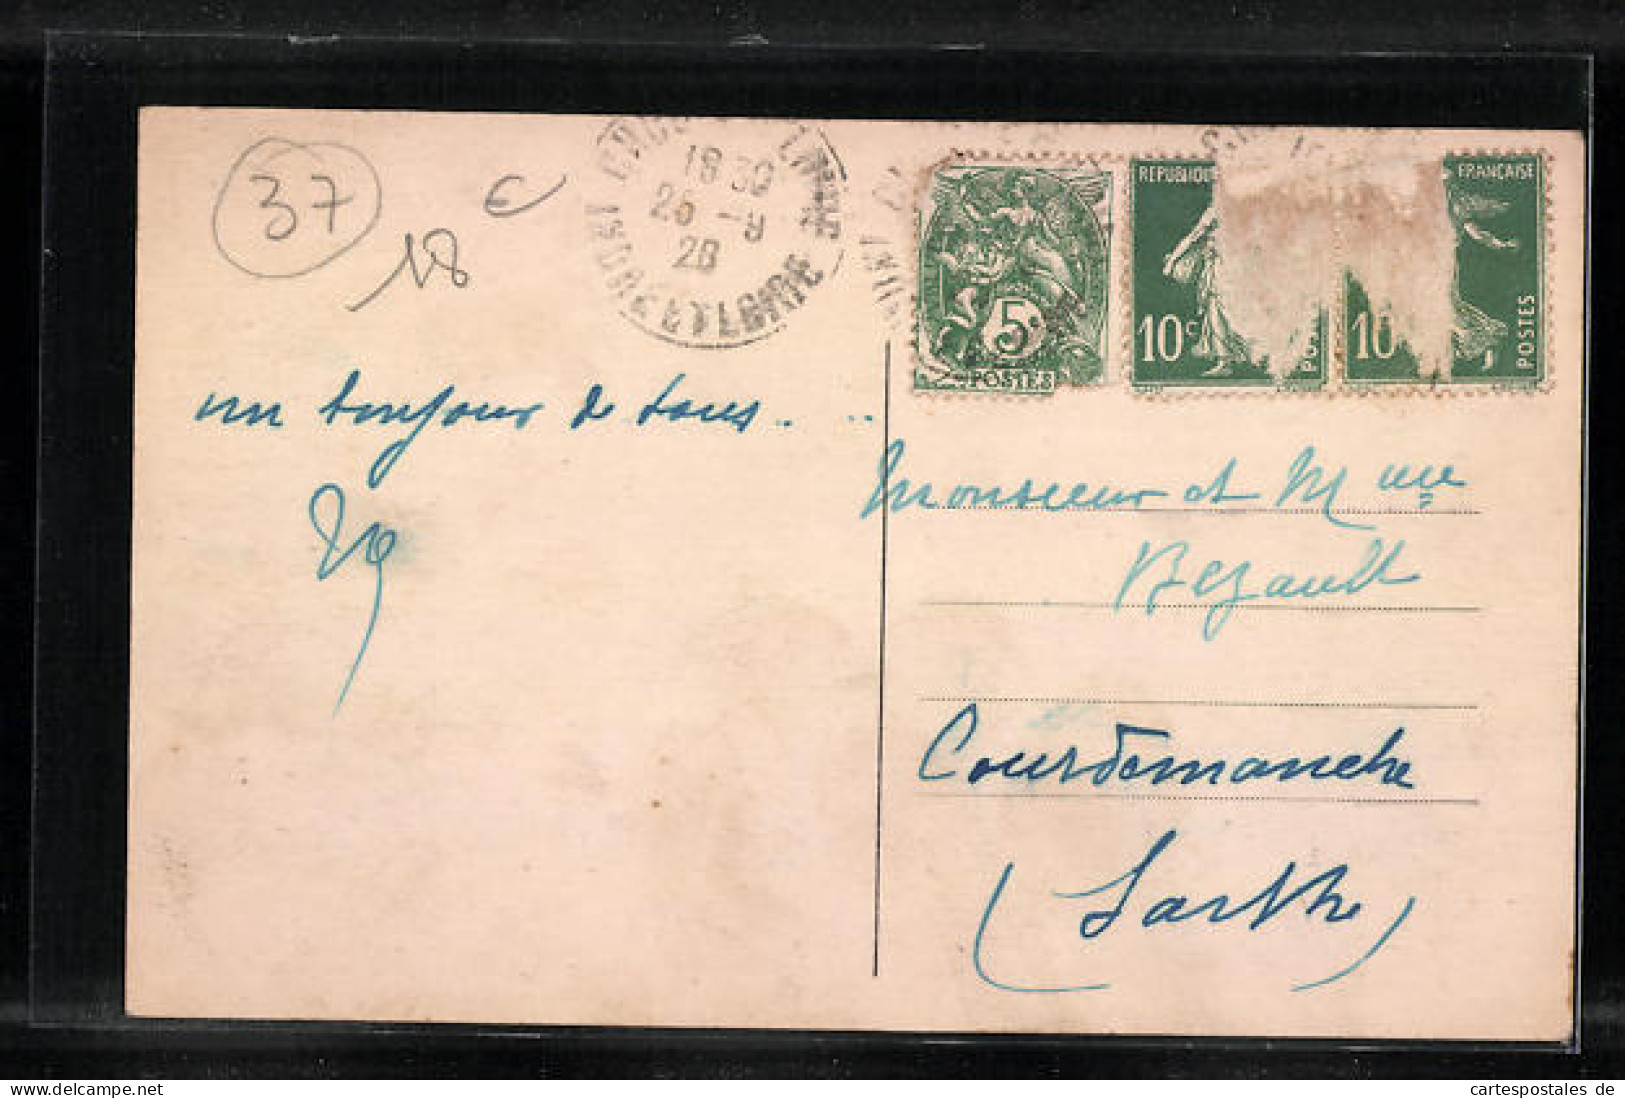 37
18 €
18 30
26 -9
28
INDRE ET LOIRE
5
POSTES
REPUBLIQUE
10 c
POSTES
FRANÇAISE
10
POSTES
un bonjour de tous. . .
Monsieur et Mme
Bezault
Courdemanche
(Sarthe)
cartespostales de